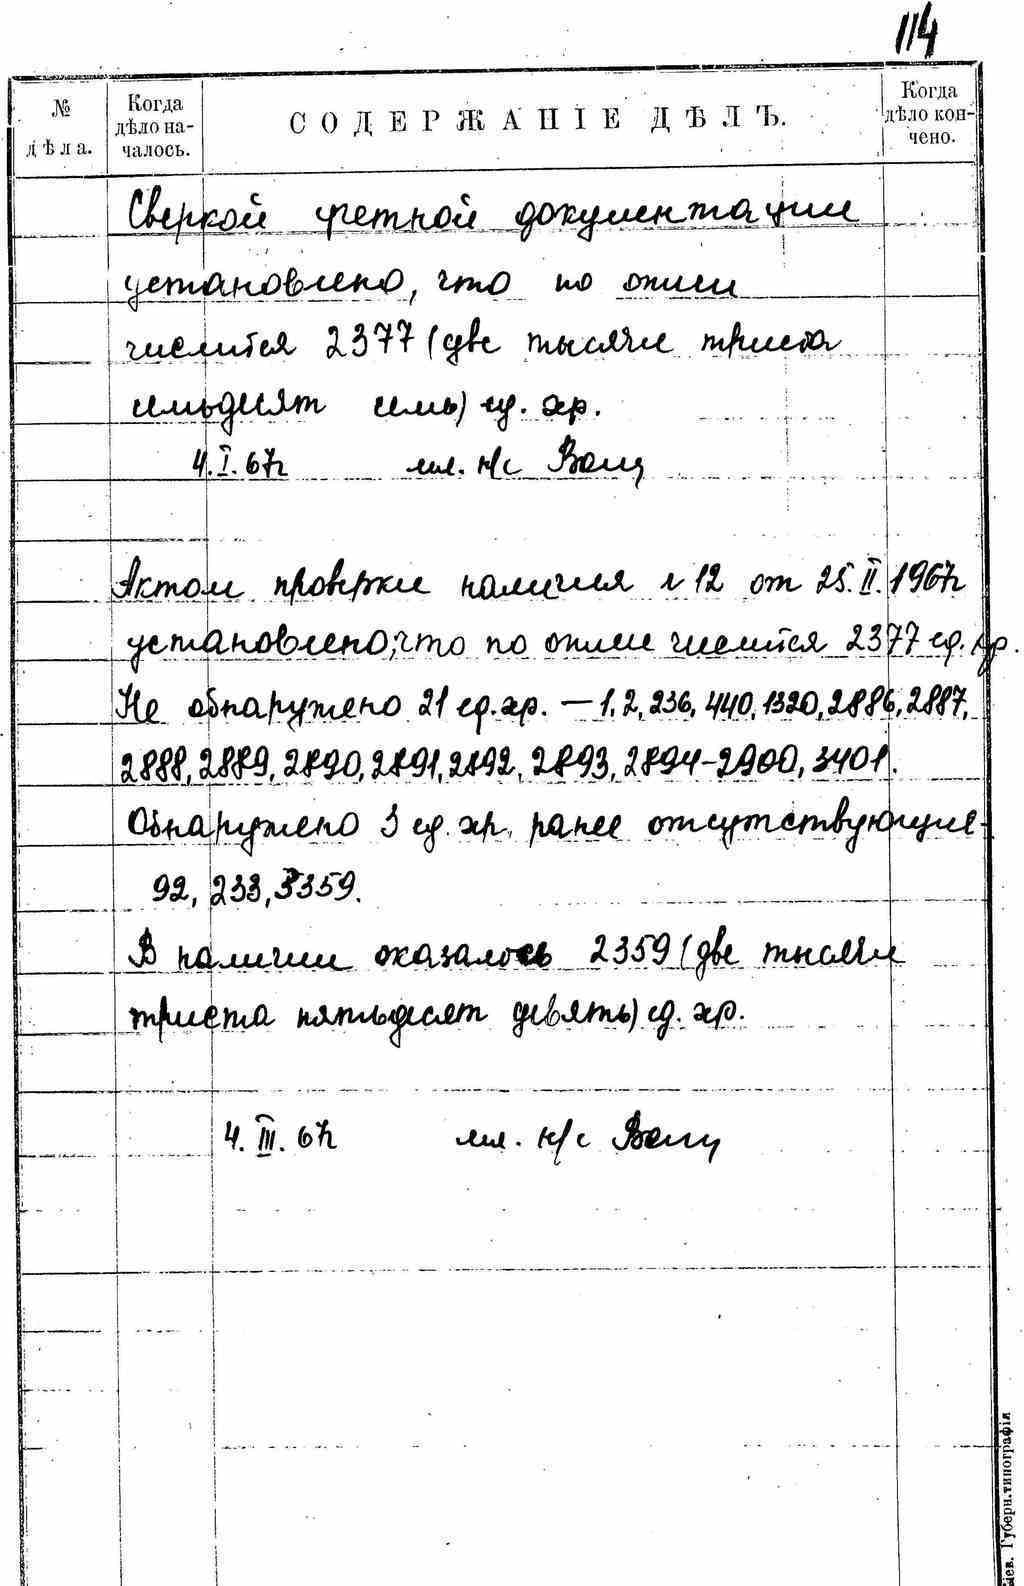 114
№ дѣла.
Когда дѣло началось.
СОДЕРЖАНІЕ ДѢЛЪ.
Когда дѣло кончено.
Сверкой учетной документации
установлено, что по описи
числится 2377 (две тысячи триста
семьдесят семь) ед. хр.
4.I.67г мл. н/с
Актом проверки наличия № 12 от 25.II.1967г
установлено, что по описи числится 2377 ед. хр.
Не обнаружено 21 ед. хр. — 1, 2, 236, 440, 1320, 2886, 2887,
2888, 2889, 2890, 2891, 2892, 2893, 2894-2900, 3401.
Обнаружено 3 ед. хр. ранее отсутствующие-
92, 233, 3359.
В наличии оказалось 2359 (две тысячи
триста пятьдесят девять) ед. хр.
4.III.67г мл. н/с
Губерн. типографія